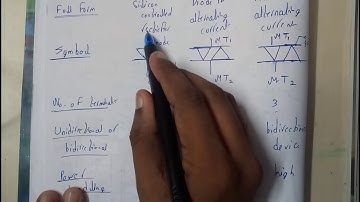 Full Form
Silicon
controlled
rectifier
Diode to
alternating
current
alternating
current
Symbol
MT1
MT1
MT2
MT2
No. of
3
Unidirectional or
bidirectional
bidirectional
device
Power
high